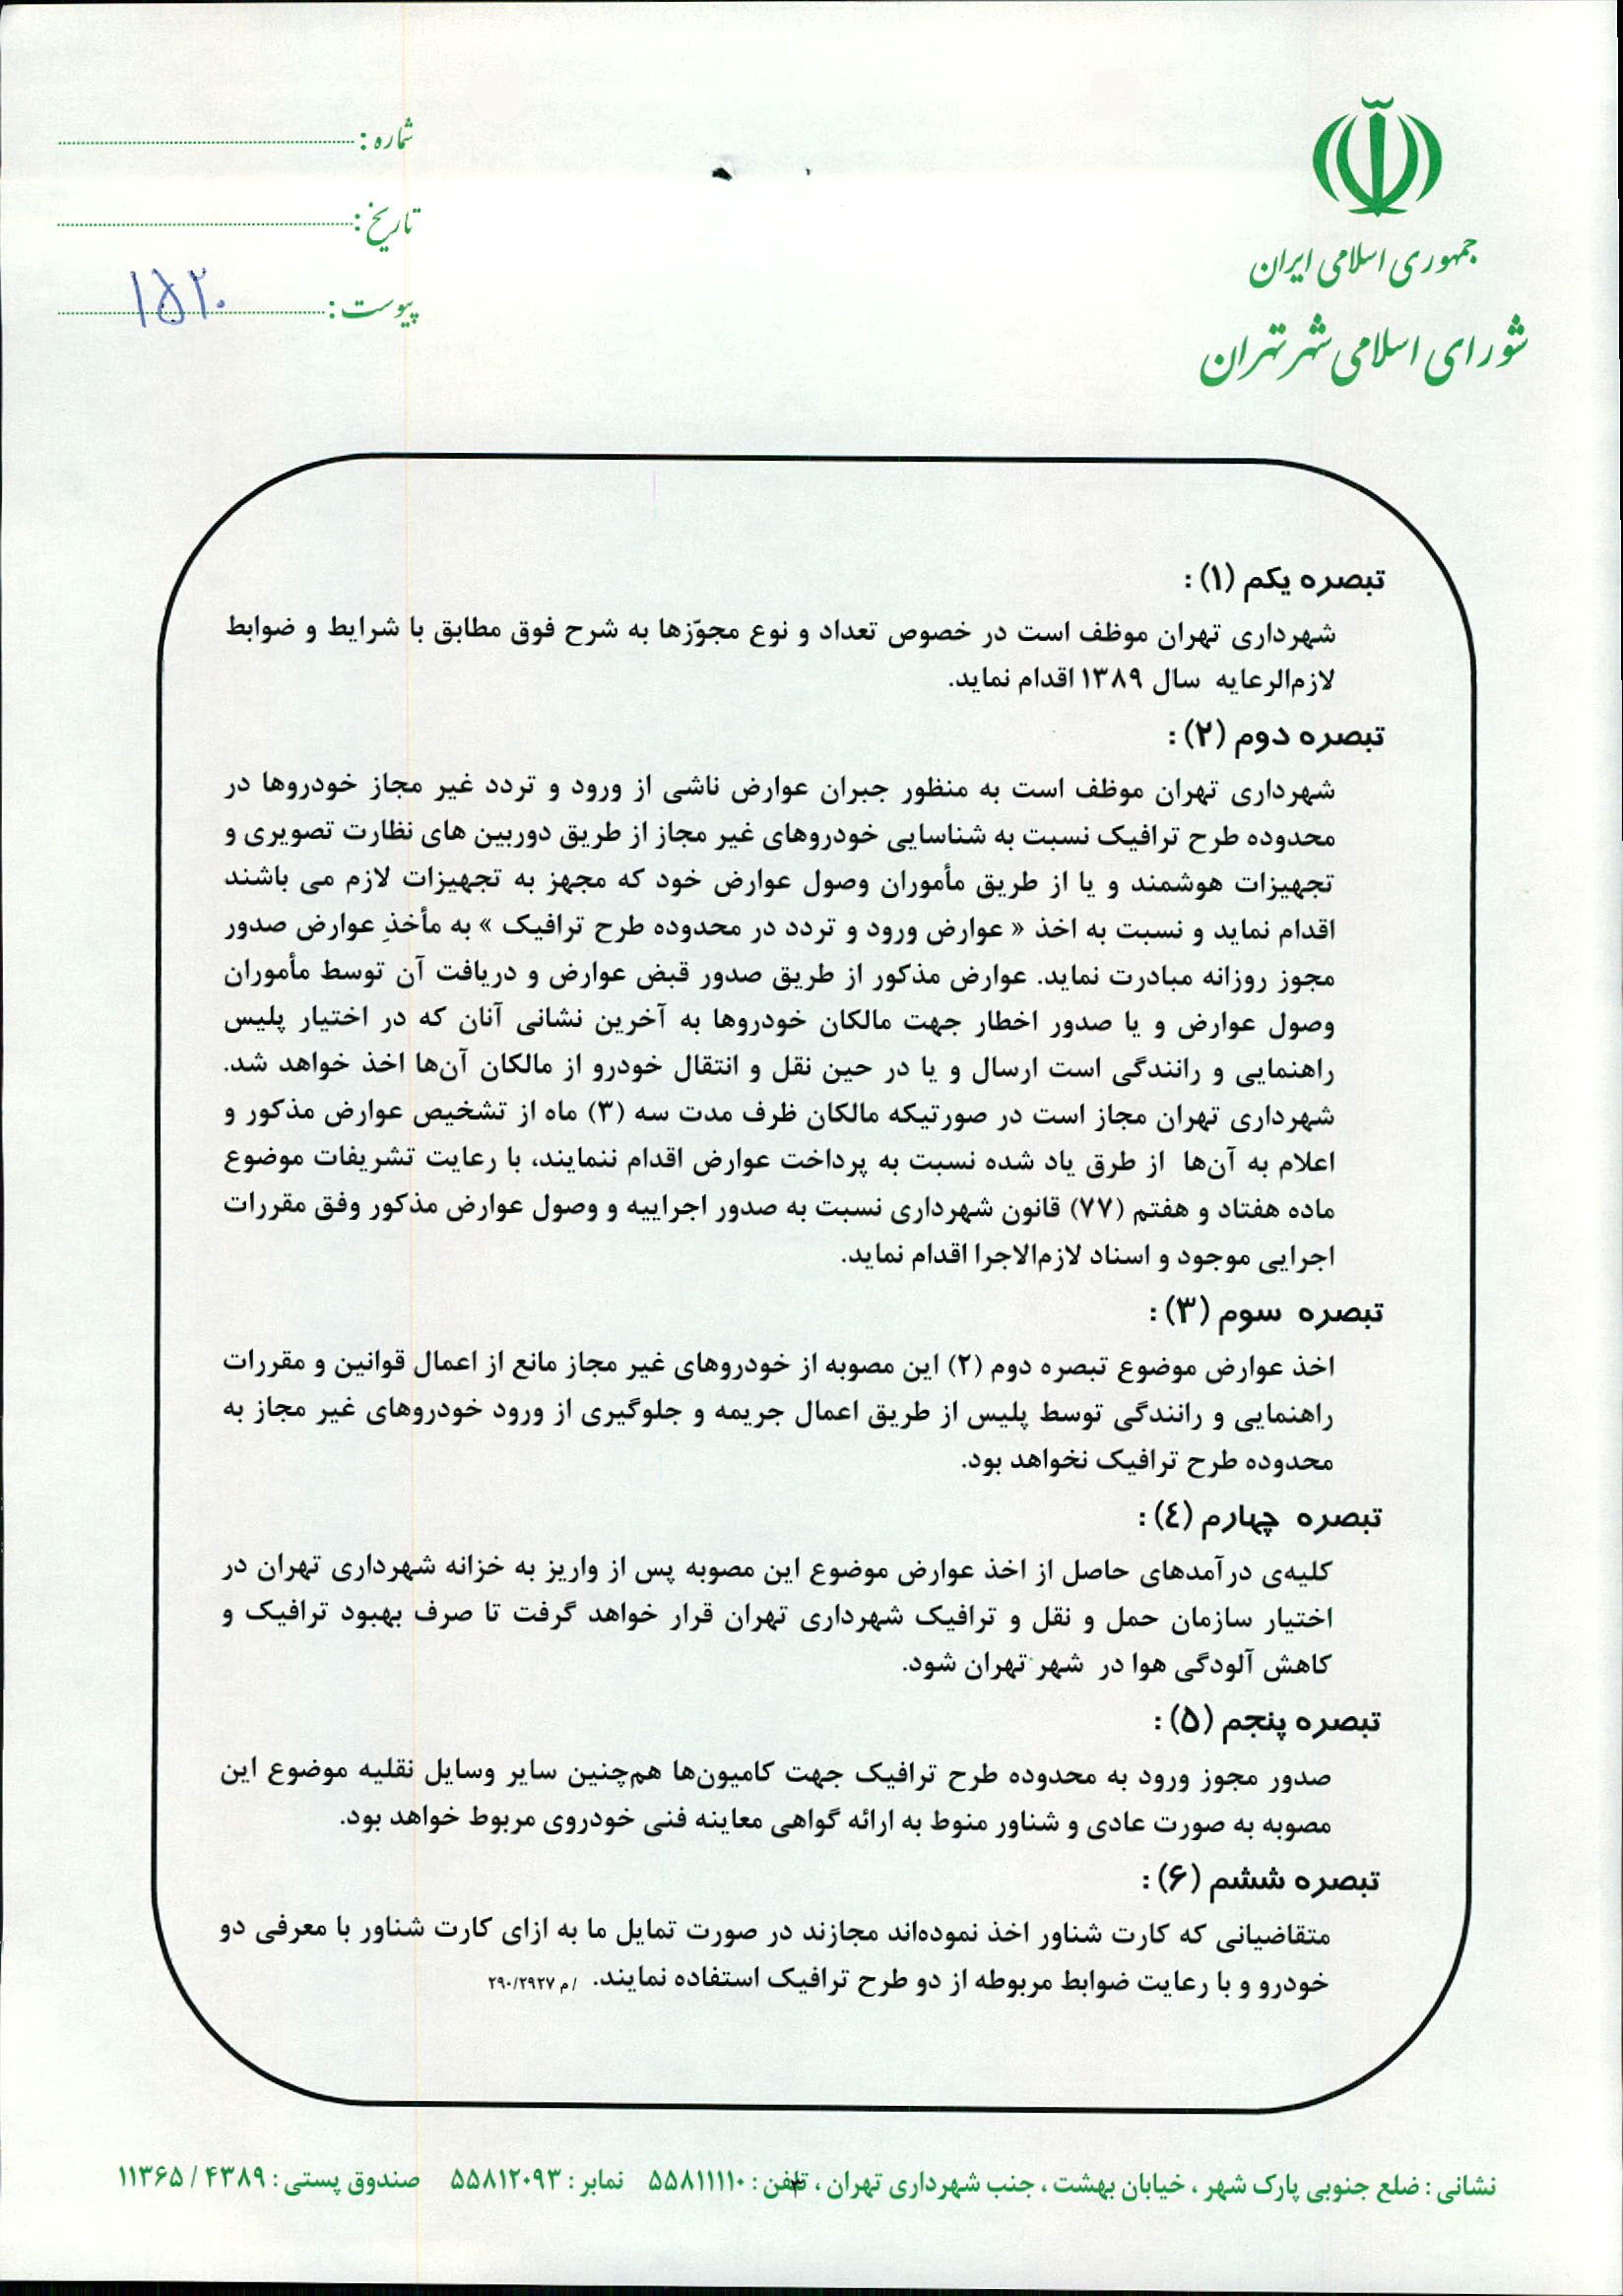 جمهوری اسلامی ایران
شورای اسلامی شهر تهران
شماره :
تاریخ :
پیوست : ۱۵۲۰
تبصره یکم (۱) :
شهرداری تهران موظف است در خصوص تعداد و نوع مجوّزها به شرح فوق مطابق با شرایط و ضوابط
لازم‌الرعایه سال ۱۳۸۹ اقدام نماید.
تبصره دوم (۲) :
شهرداری تهران موظف است به منظور جبران عوارض ناشی از ورود و تردد غیر مجاز خودروها در
محدوده طرح ترافیک نسبت به شناسایی خودروهای غیر مجاز از طریق دوربین های نظارت تصویری و
تجهیزات هوشمند و یا از طریق مأموران وصول عوارض خود که مجهز به تجهیزات لازم می باشند
اقدام نماید و نسبت به اخذ « عوارض ورود و تردد در محدوده طرح ترافیک » به مأخذِ عوارض صدور
مجوز روزانه مبادرت نماید. عوارض مذکور از طریق صدور قبض عوارض و دریافت آن توسط مأموران
وصول عوارض و یا صدور اخطار جهت مالکان خودروها به آخرین نشانی آنان که در اختیار پلیس
راهنمایی و رانندگی است ارسال و یا در حین نقل و انتقال خودرو از مالکان آن‌ها اخذ خواهد شد.
شهرداری تهران مجاز است در صورتیکه مالکان ظرف مدت سه (۳) ماه از تشخیص عوارض مذکور و
اعلام به آن‌ها از طرق یاد شده نسبت به پرداخت عوارض اقدام ننمایند، با رعایت تشریفات موضوع
ماده هفتاد و هفتم (۷۷) قانون شهرداری نسبت به صدور اجراییه و وصول عوارض مذکور وفق مقررات
اجرایی موجود و اسناد لازم‌الاجرا اقدام نماید.
تبصره سوم (۳) :
اخذ عوارض موضوع تبصره دوم (۲) این مصوبه از خودروهای غیر مجاز مانع از اعمال قوانین و مقررات
راهنمایی و رانندگی توسط پلیس از طریق اعمال جریمه و جلوگیری از ورود خودروهای غیر مجاز به
محدوده طرح ترافیک نخواهد بود.
تبصره چهارم (٤) :
کلیه‌ی درآمدهای حاصل از اخذ عوارض موضوع این مصوبه پس از واریز به خزانه شهرداری تهران در
اختیار سازمان حمل و نقل و ترافیک شهرداری تهران قرار خواهد گرفت تا صرف بهبود ترافیک و
کاهش آلودگی هوا در شهر تهران شود.
تبصره پنجم (۵) :
صدور مجوز ورود به محدوده طرح ترافیک جهت کامیون‌ها هم‌چنین سایر وسایل نقلیه موضوع این
مصوبه به صورت عادی و شناور منوط به ارائه گواهی معاینه فنی خودروی مربوط خواهد بود.
تبصره ششم (۶) :
متقاضیانی که کارت شناور اخذ نموده‌اند مجازند در صورت تمایل ما به ازای کارت شناور با معرفی دو
خودرو و با رعایت ضوابط مربوطه از دو طرح ترافیک استفاده نمایند. /م ۲۹۰/۲۹۲۷
نشانی : ضلع جنوبی پارک شهر ، خیابان بهشت ، جنب شهرداری تهران ، تلفن : ۵۵۸۱۱۱۱۰ نمابر : ۵۵۸۱۲۰۹۳ صندوق پستی : ۴۳۸۹ / ۱۱۳۶۵